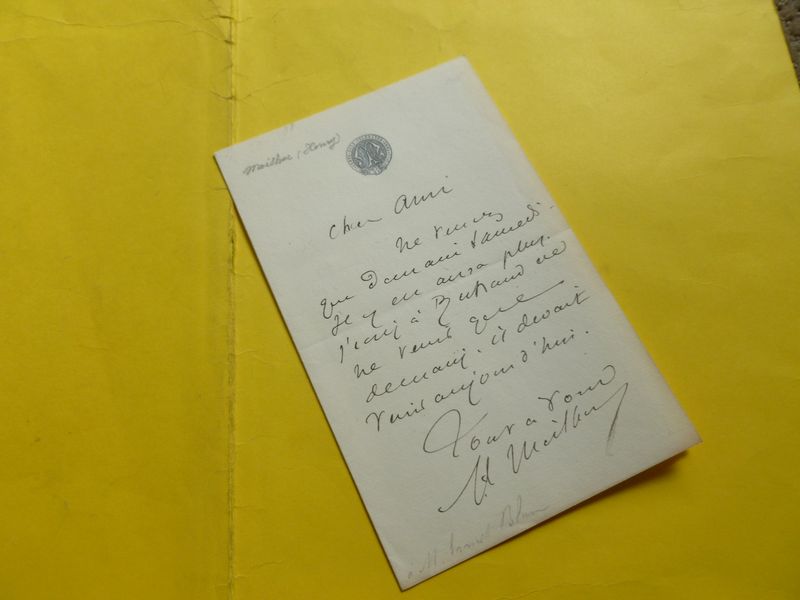 Meilhac (Henry)
Cher Ami
Ne venez
que Demain Samedi.
Je y en aura plus.
J'écris à Bertrand de
ne venir que
demain. il devait
venir aujourd'hui.
Tout à vous
H Meilhac
à M. Ernest Blum